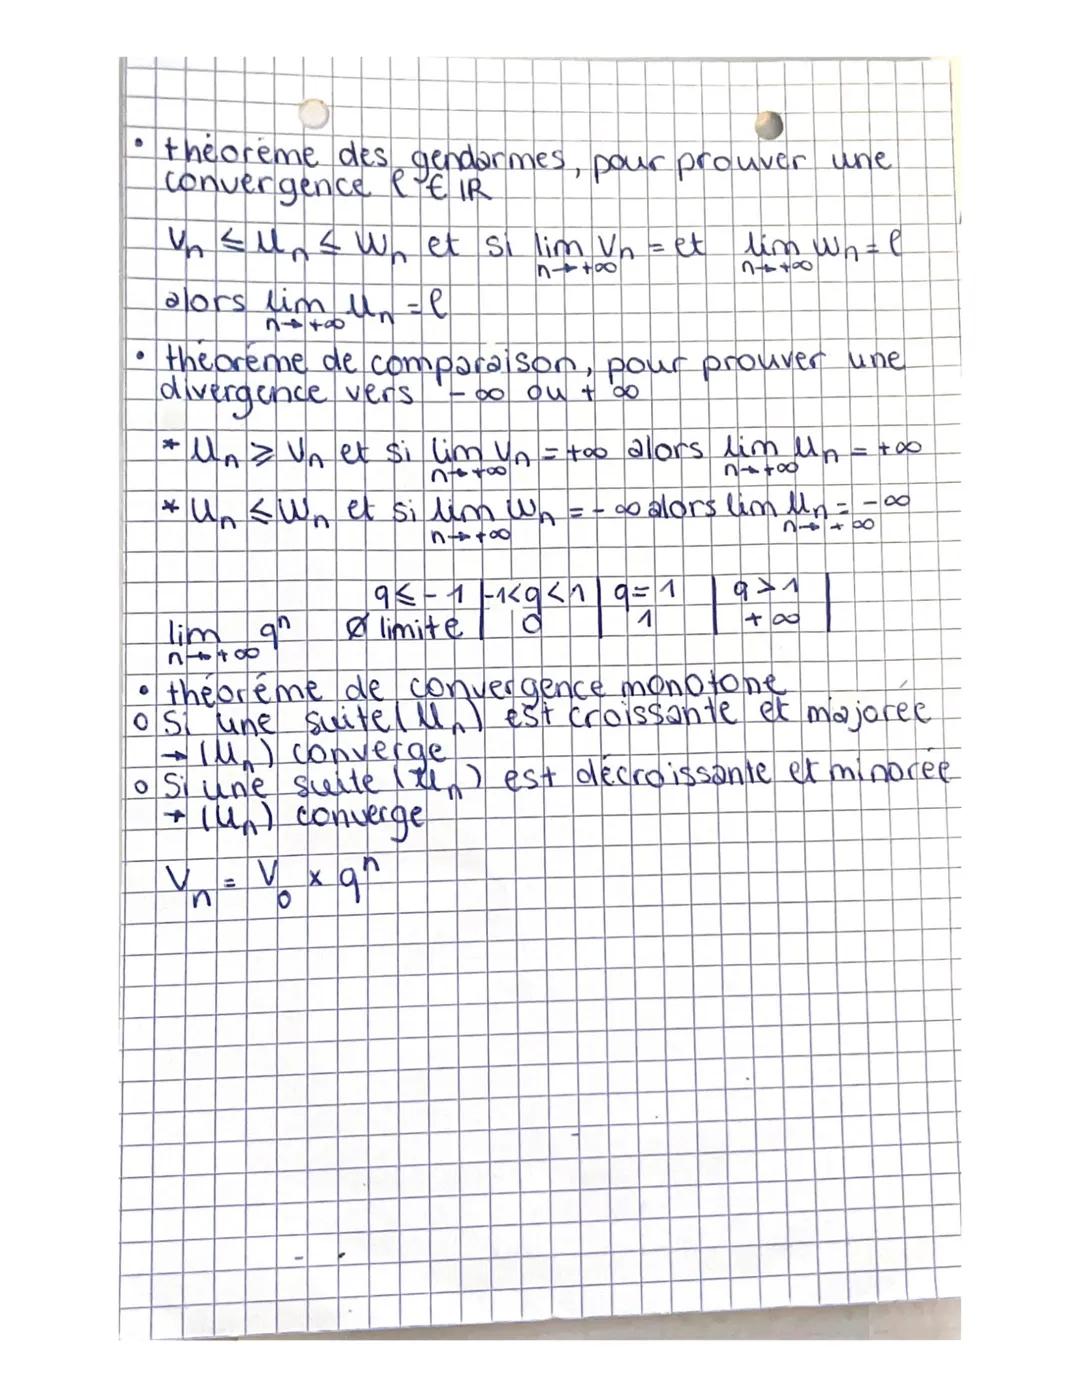 • théorème des gendarmes, pour prouver une
convergence ℓ ∈ IR
Vn ≤ Un ≤ Wn et si lim Vn = et lim Wn = ℓ
n→+∞ n→+∞
alors lim Un = ℓ
n→+∞
• théorème de comparaison, pour prouver une
divergence vers -∞ ou +∞
* Un ≥ Vn et si lim Vn = +∞ alors lim Un = +∞
n→+∞ n→+∞
* Un ≤ Wn et si lim Wn = -∞ alors lim Un = -∞
n→+∞ n→+∞
q ≤ -1 | -1<q<1 | q = 1 | q > 1 |
lim qⁿ ∅ limite | 0 | 1 | +∞ |
n→+∞
• théorème de convergence monotone
o Si une suite (Un) est croissante et majorée
→ (Un) converge
o Si une suite (Un) est décroissante et minorée
→ (Un) converge
Vn = V0 × qⁿ